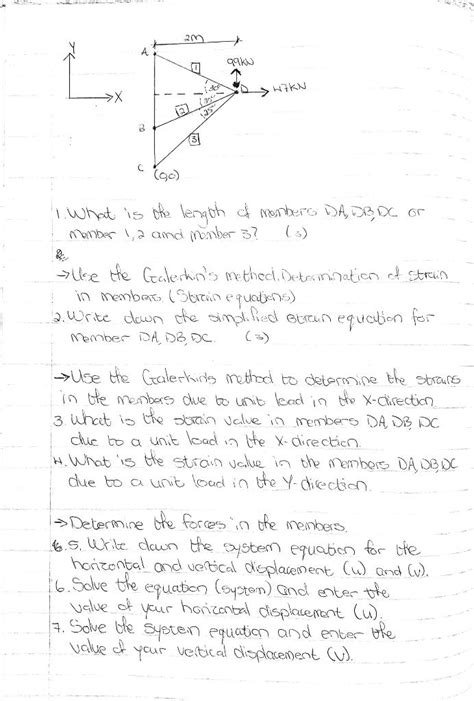 2m
Y
A
99kN
1
D
47kN
X
2
B
3
C
(0,0)
1. What is the length of members DA, DB, DC or
member 1, 2 and member 3? (3)
→ Use the Galerkin's method. Determination of strain
in members (Strain equations)
2. Write down the simplified strain equation for
member DA, DB, DC. (3)
→ Use the Galerkin's method to determine the strains
in the members due to unit load in the X-direction.
3. What is the strain value in members DA, DB, DC
due to a unit load in the X-direction.
4. What is the strain value in the members DA, DB, DC
due to a unit load in the Y-direction.
→ Determine the forces in the members.
5. Write down the system equation for the
horizontal and vertical displacement (u) and (v).
6. Solve the equation (system) and enter the
value of your horizontal displacement (u).
7. Solve the system equation and enter the
value of your vertical displacement (v).